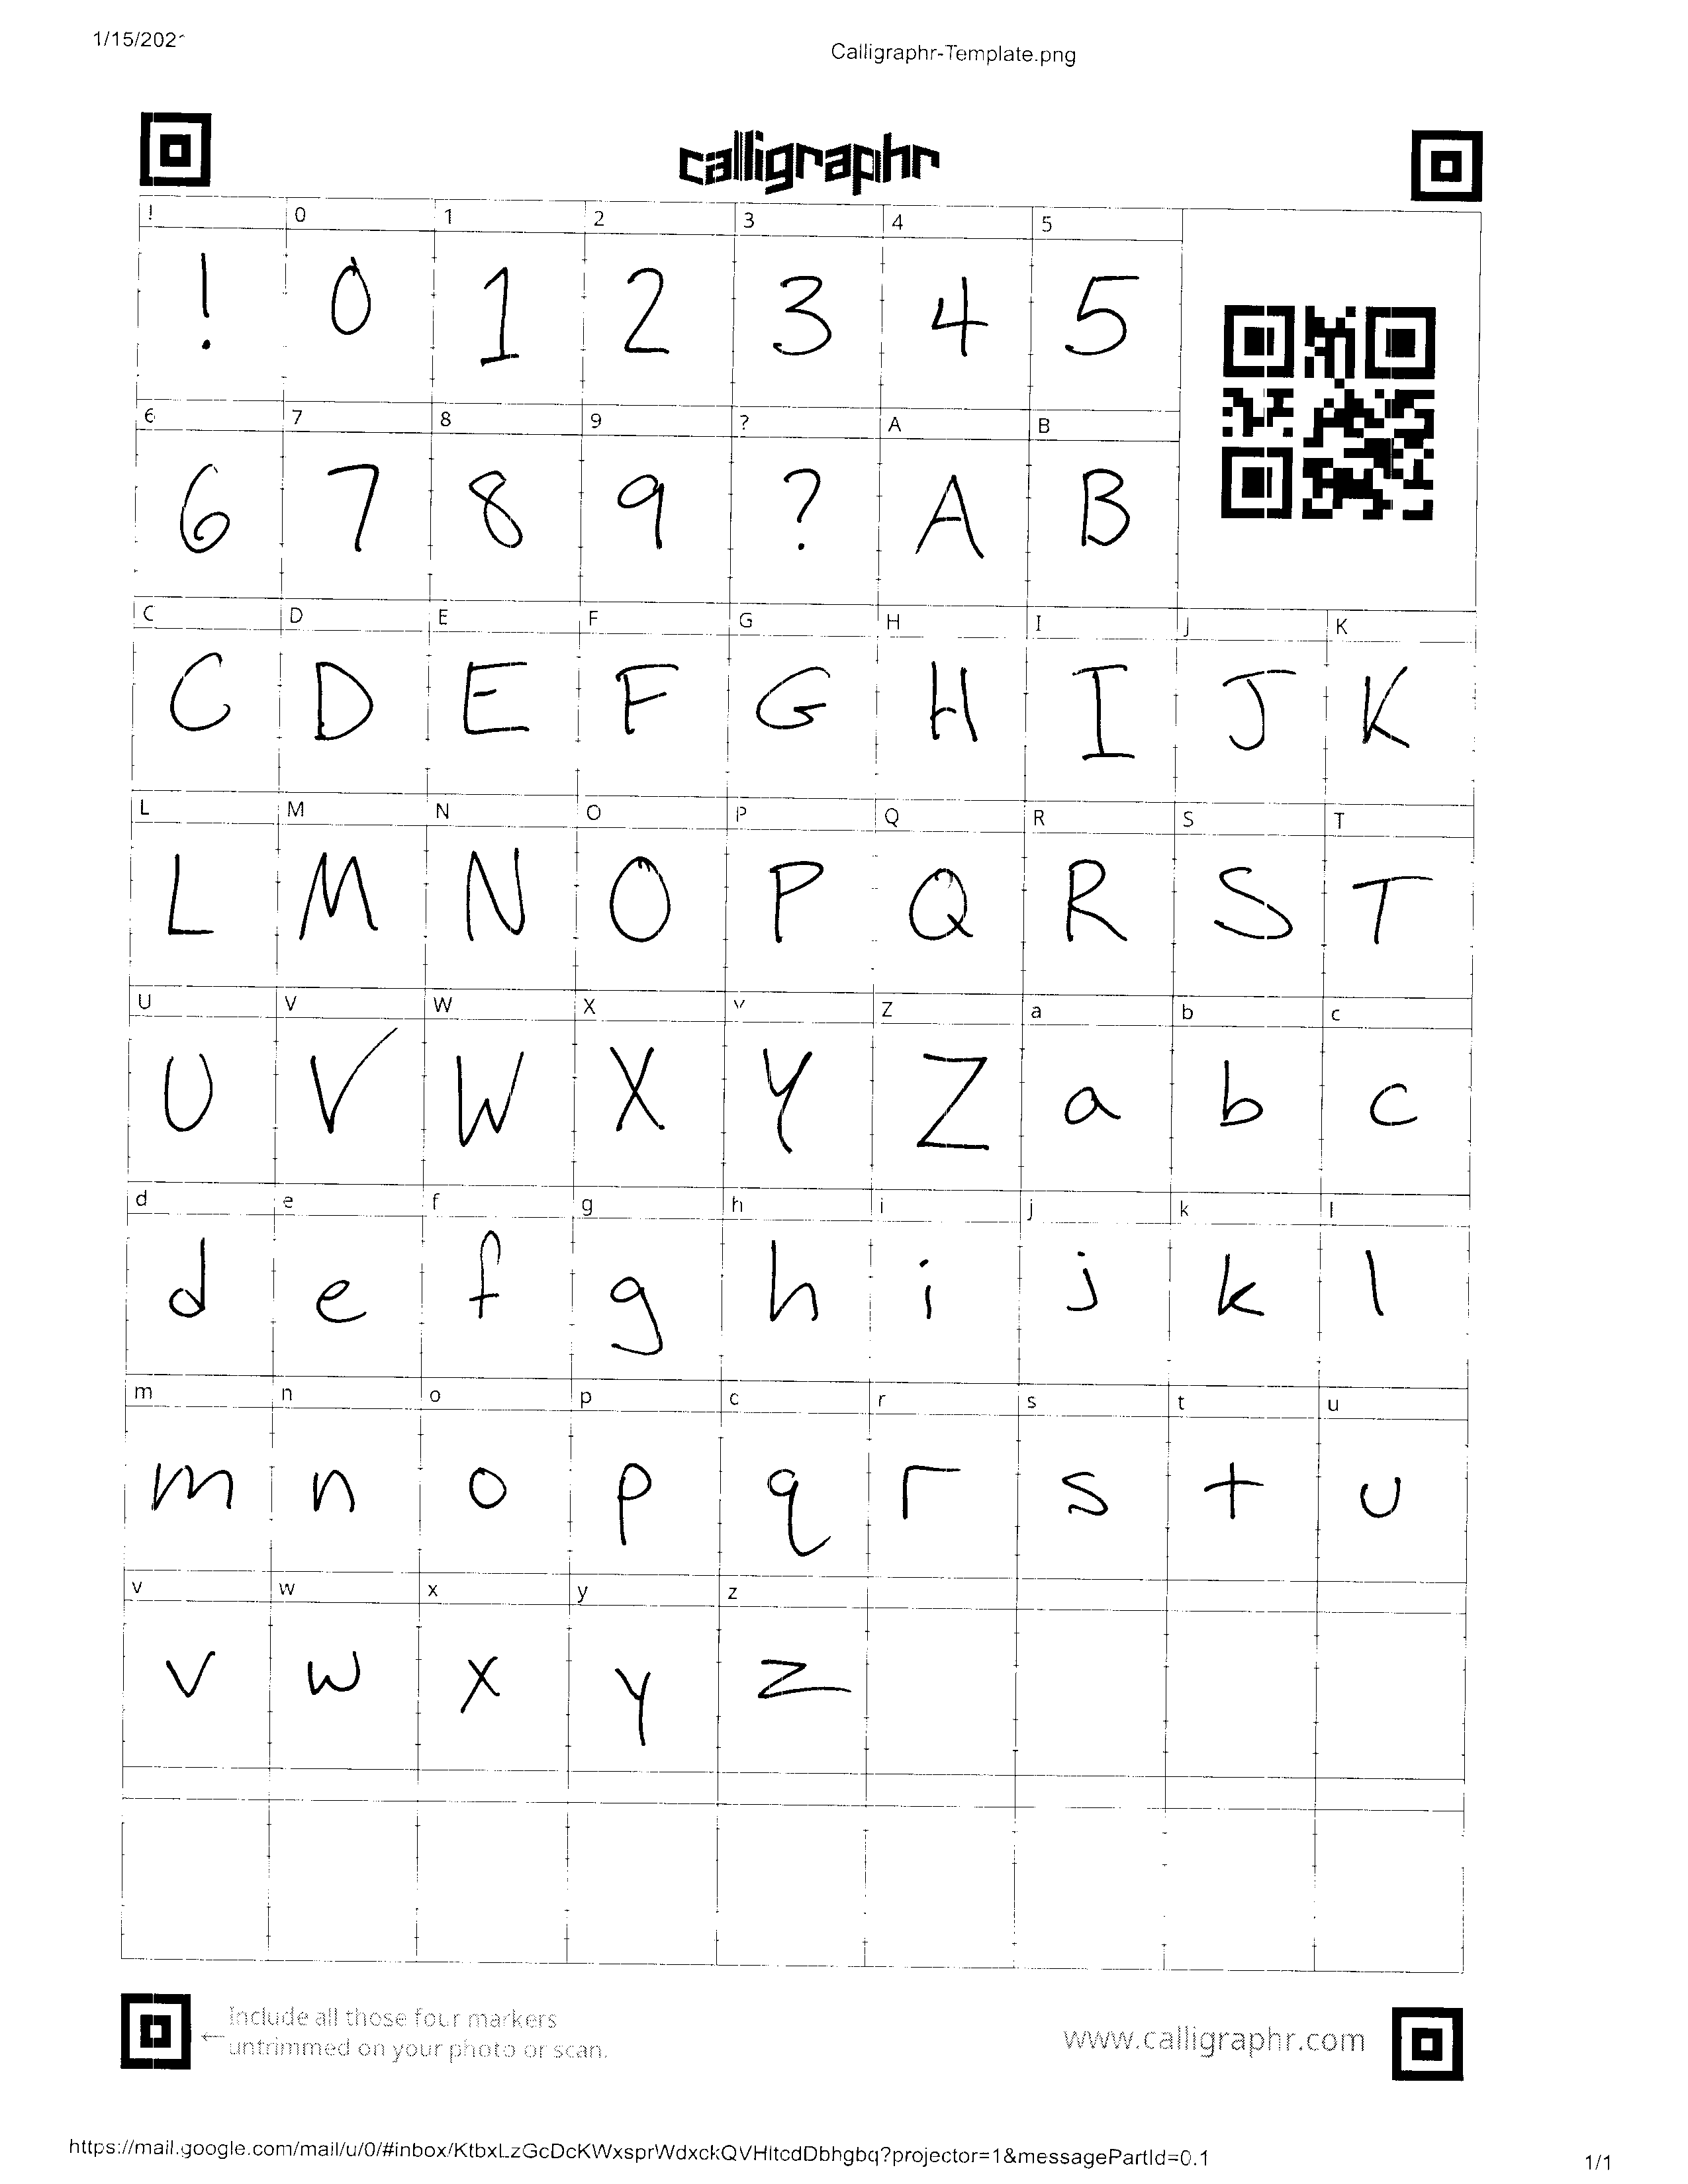 1/15/202
Calligraphr-Template.png
calligraphr
! 0 1 2 3 4 5
! 0 1 2 3 4 5
6 7 8 9 ? A B
6 7 8 9 ? A B
C D E F G H I J K
C D E F G H I J K
L M N O P Q R S T
L M N O P Q R S T
U V W X Y Z a b c
U V W X Y Z a b c
d e f g h i j k l
d e f g h i j k l
m n o p c r s t u
m n o p q r s t u
v w x y z
v w x y z
Include all those four markers
← untrimmed on your photo or scan.
www.calligraphr.com
https://mail.google.com/mail/u/0/#inbox/KtbxLzGcDcKWxsprWdxckQVHltcdDbhgbq?projector=1&messagePartId=0.1
1/1